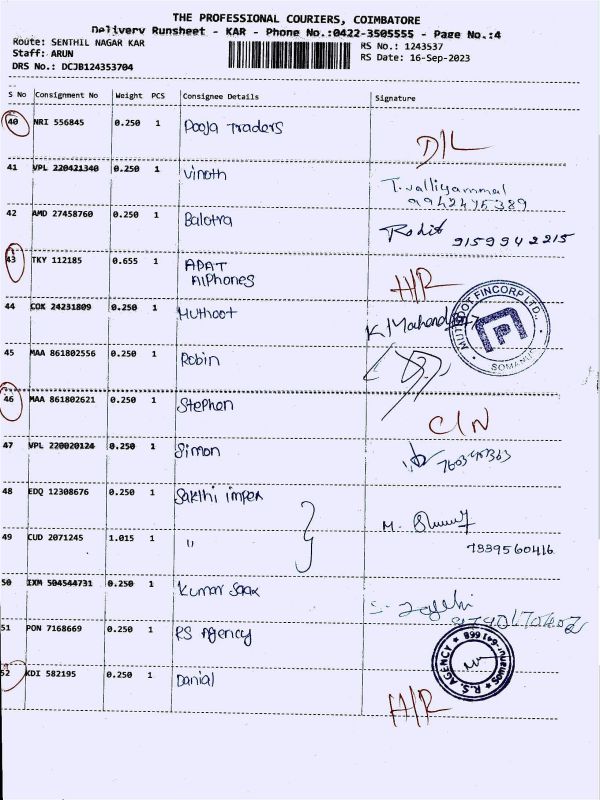 THE PROFESSIONAL COURIERS, COIMBATORE
Delivery Runsheet - KAR - Phone No.:0422-3505555 - Page No.:4
Route: SENTHIL NAGAR KAR
Staff: ARUN
DRS No.: DCJB124353704
RS No.: 1243537
RS Date: 16-Sep-2023
S No Consignment No Weight PCS Consignee Details Signature
40 NRI 556845 0.250 1 Pooja Traders D/L
41 VPL 220421340 0.250 1 Vinoth T. Valliyammal
9942475389
42 AMD 27458760 0.250 1 Balotra Rohit 9159942215
43 TKY 112185 0.655 1 APAT H/R
AIPhones
44 COK 24231809 0.250 1 Muthoot K Mahendran
MUTHOOT FINCORP LTD.,
SOMANUR
45 MAA 861802556 0.250 1 Robin
46 MAA 861802621 0.250 1 Stephen C/N
47 VPL 220020124 0.250 1 Simon
48 EDQ 12308676 0.250 1 Sakthi impex M.
49 CUD 2071245 1.015 1 " 7339560416
50 IXM 504544731 0.250 1 Kumar Saax
51 PON 7168669 0.250 1 RS Agency R.S. AGENCY
Somanur-641 668
52 KDI 582195 0.250 1 Danial H/R